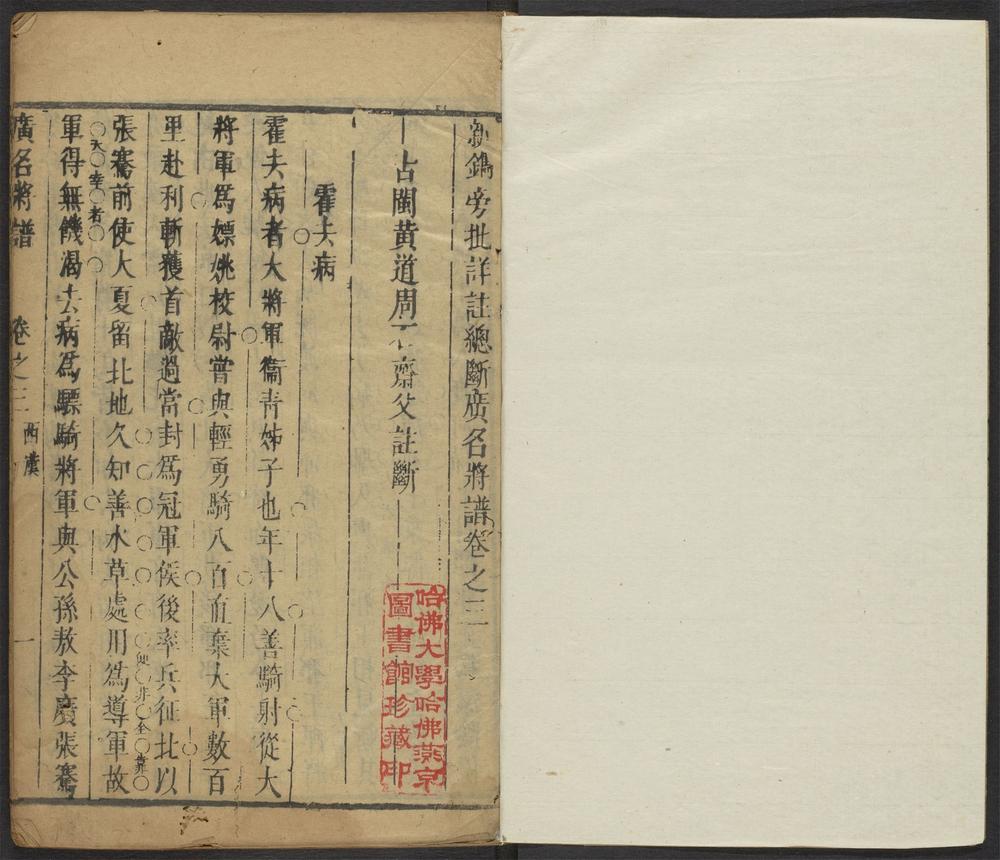 新鐫旁批詳註總斷廣名將譜卷之三
古閩黃道周石齋父註斷
霍去病
霍去病者大將軍衞青姊子也年十八善騎射從大
將軍爲嫖姚校尉嘗與輕勇騎八百直棄大軍數百
里赴利斬獲首敵過當封爲冠軍侯後率兵征北以
張騫前使大夏留北地久知善水草處用爲導軍故
便非全靠
天幸者
軍得無饑渴去病爲驃騎將軍與公孫敖李廣張騫
廣名將譜 卷之三 西漢 一
哈佛大學哈佛燕京
圖書館珍藏印